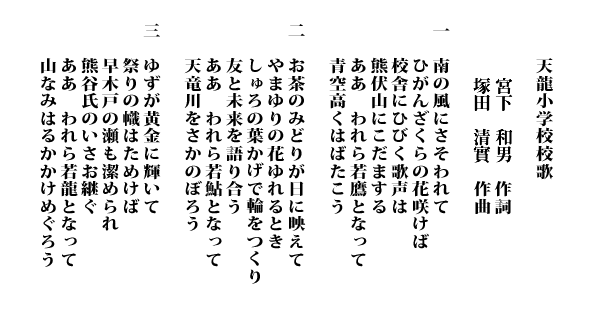 天龍小学校校歌
宮下　和男　作詞
塚田　清實　作曲
一
南の風にさそわれて
ひがんざくらの花咲けば
校舎にひびく歌声は
熊伏山にこだまする
ああ　われら若鷹となって
青空高くはばたこう
二
お茶のみどりが目に映えて
やまゆりの花ゆれるとき
しゅろの葉かげで輪をつくり
友と未来を語り合う
ああ　われら若鮎となって
天竜川をさかのぼろう
三
ゆずが黄金に輝いて
祭りの幟はためけば
早木戸の瀬も潔められ
熊谷氏のいさお継ぐ
ああ　われら若龍となって
山なみはるかかけめぐろう